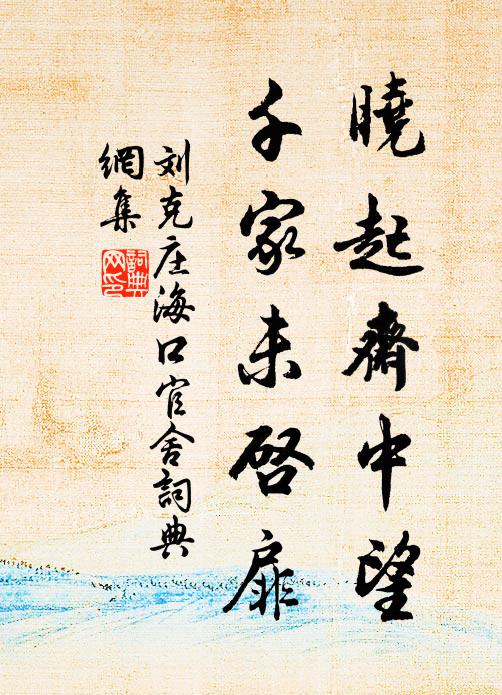 曉起齋中望
千家未啓扉
刘克庄海口官舍詞典
網集
詞典
网印